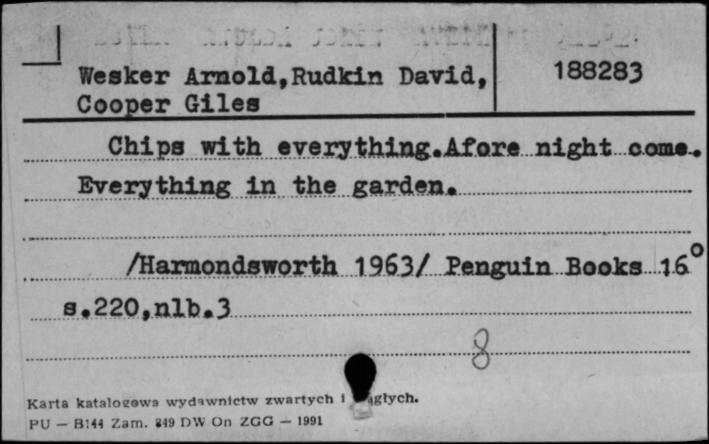 Wesker Arnold,Rudkin David,
Cooper Giles
188283
Chips with everything.Afore night come.
Everything in the garden.
/Harmondsworth 1963/ Penguin Books 16°
s.220,nlb.3
8
Karta katalogowa wydawnictw zwartych i
PU — B144 Zam. 849 DW On ZGG — 1991